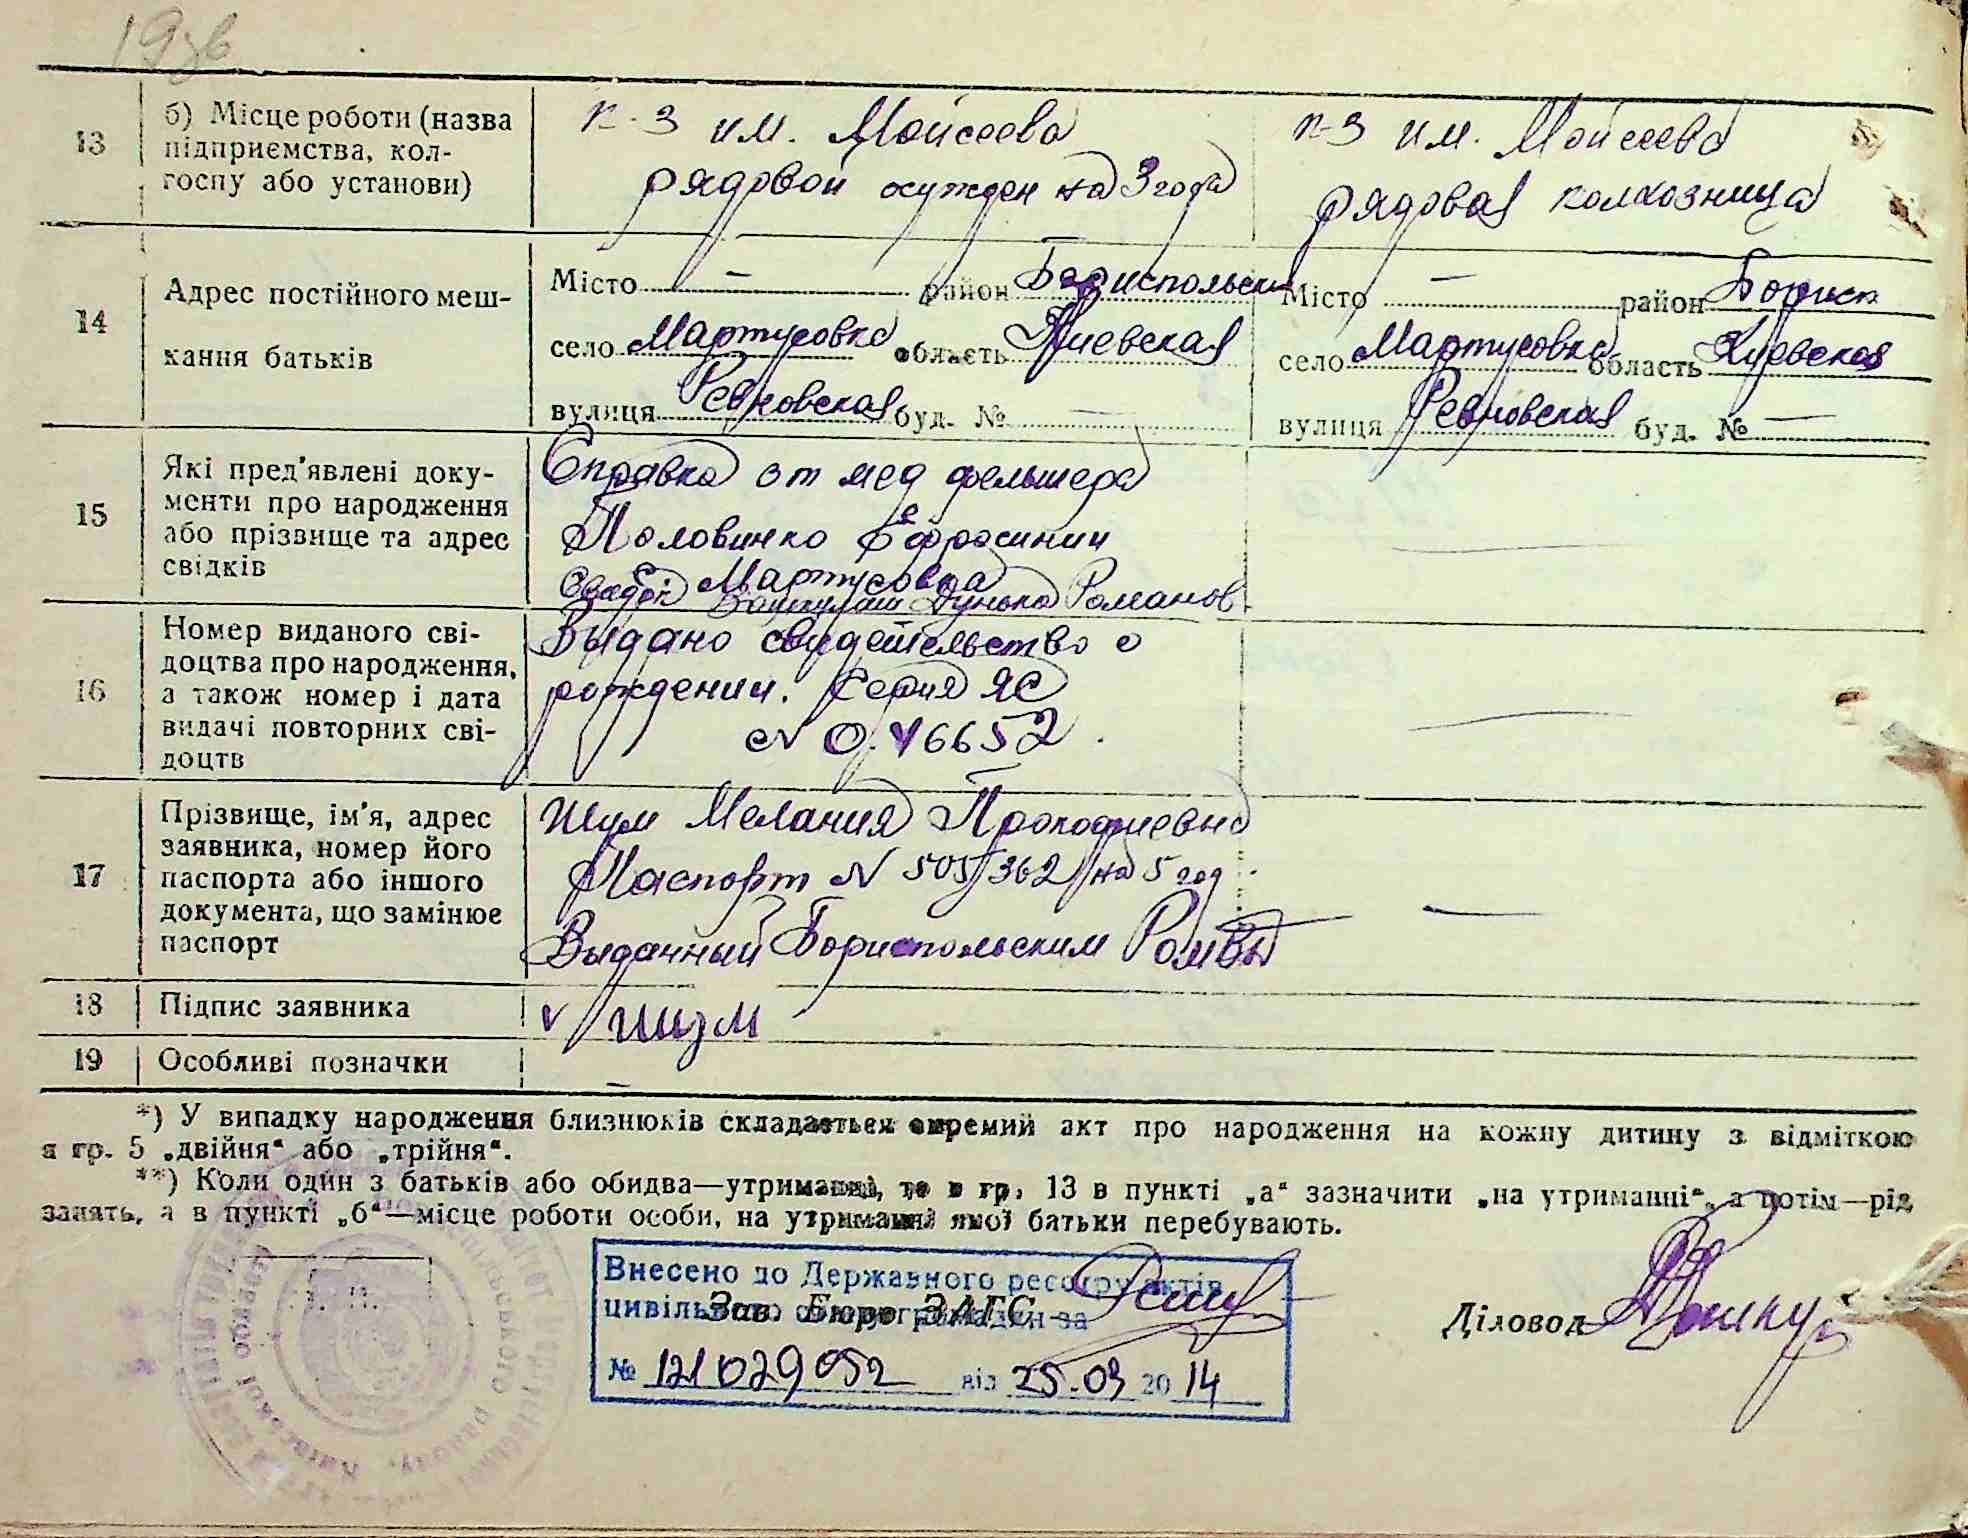 19зв
13
б) Місце роботи (назва
підприємства, кол-
госпу або установи)
к-з им. Мойсеева
рядовой осужден на 3 года
к-з им. Мойсеева
рядовая колхозница
14
Адрес постійного меш-
кання батьків
Місто — район Бориспольск
село Мартусовка область Киевская
вулиця Ревновская буд. № —
Місто — район Борисп
село Мартусовка область Киевская
вулиця Ревновская буд. № —
15
Які пред'явлені доку-
менти про народження
або прізвище та адрес
свідків
Справка от мед фельшера
Половинко Ефросинии
Мартусовка
Дунька Романов
—
16
Номер виданого сві-
доцтва про народження,
а також номер і дата
видачі повторних сві-
доцтв
Выдано свидетельство о
рождении. Серия ЯС
—
17
Прізвище, ім'я, адрес
заявника, номер його
паспорта або іншого
документа, що замінює
паспорт
Шум Мелания Прокофиевна
Паспорт N 505/362/на 5 год
Выданный Бориспольским
—
18
Підпис заявника
v Шум
19
Особливі позначки
—
*) У випадку народження близнюків складається окремий акт про народження на кожну дитину з відміткою
в гр. 5 „двійня" або „трійня".
**) Коли один з батьків або обидва—утриманці, то в гр. 13 в пункті „а" зазначити „на утриманні", а потім—рід
занять, а в пункті „б"—місце роботи особи, на утриманні якої батьки перебувають.
Внесено до Державного реєстру актів
цивільного стану громадян за
№ 121029052 від 25.03 2014
Зав. Бюро ЗАГС
Діловод